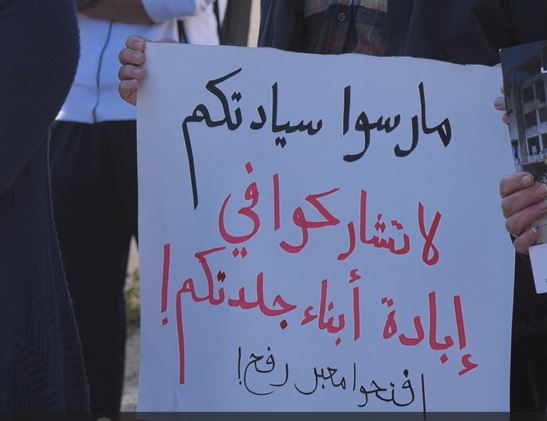 مارسوا سيادتكم
لا تشاركوا في
إبادة أبناء جلدتكم!
افتحوا معبر رفح!